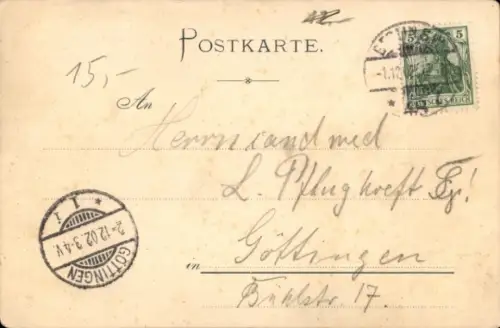 POSTKARTE.
15,-
5 5
-1.12
An
Herrn cand med
L. Pflughoeft Fg!
in Göttingen
Bühlstr. 17.
GÖTTINGEN
2-12.02.3-4V.
* 1 I